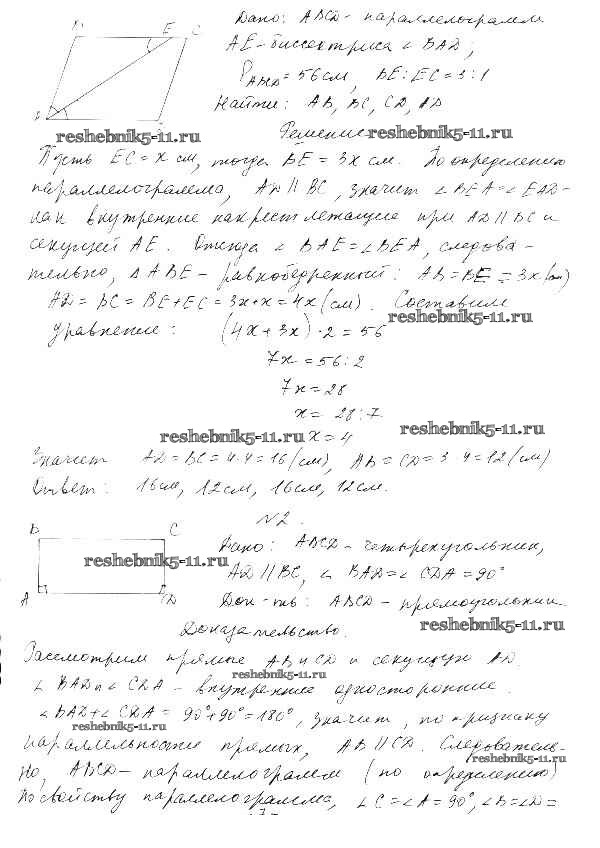 B E C
Дано: ABCD - параллелограмм
AE - биссектриса ∠ BAD,
P ABCD = 56 см, BE : EC = 3 : 1
Найти: AB, BC, CD, AD
A
reshebnik5-11.ru
Решение
reshebnik5-11.ru
Пусть EC = x см, тогда BE = 3x см. По определению
параллелограмма, AD || BC, значит ∠ BEA = ∠ EAD -
как внутренние накрест лежащие при AD || BC и
секущей AE. Отсюда ∠ BAE = ∠ BEA, следова-
тельно, Δ ABE - равнобедренный: AB = BE = 3x (см)
AD = BC = BE + EC = 3x + x = 4x (см). Составим
reshebnik5-11.ru
уравнение: (4x + 3x) · 2 = 56
7x = 56 : 2
7x = 28
x = 28 : 7
reshebnik5-11.ru
x = 4
reshebnik5-11.ru
Значит AD = BC = 4 · 4 = 16 (см), AB = CD = 3 · 4 = 12 (см)
Ответ: 16 см, 12 см, 16 см, 12 см.
№2.
B C
Дано: ABCD - четырехугольник,
reshebnik5-11.ru
AD || BC, ∠ BAD = ∠ CDA = 90°
A D
Док-ть: ABCD - прямоугольник.
Доказательство.
reshebnik5-11.ru
Рассмотрим прямые AB и CD и секущую AD.
reshebnik5-11.ru
∠ BAD и ∠ CDA - внутренние односторонние.
∠ BAD + ∠ CDA = 90° + 90° = 180°, значит, по признаку
reshebnik5-11.ru
параллельности прямых, AB || CD. Следователь-
reshebnik5-11.ru
но, ABCD - параллелограмм (по определению)
По свойству параллелограмма, ∠ C = ∠ A = 90°, ∠ B = ∠ D =